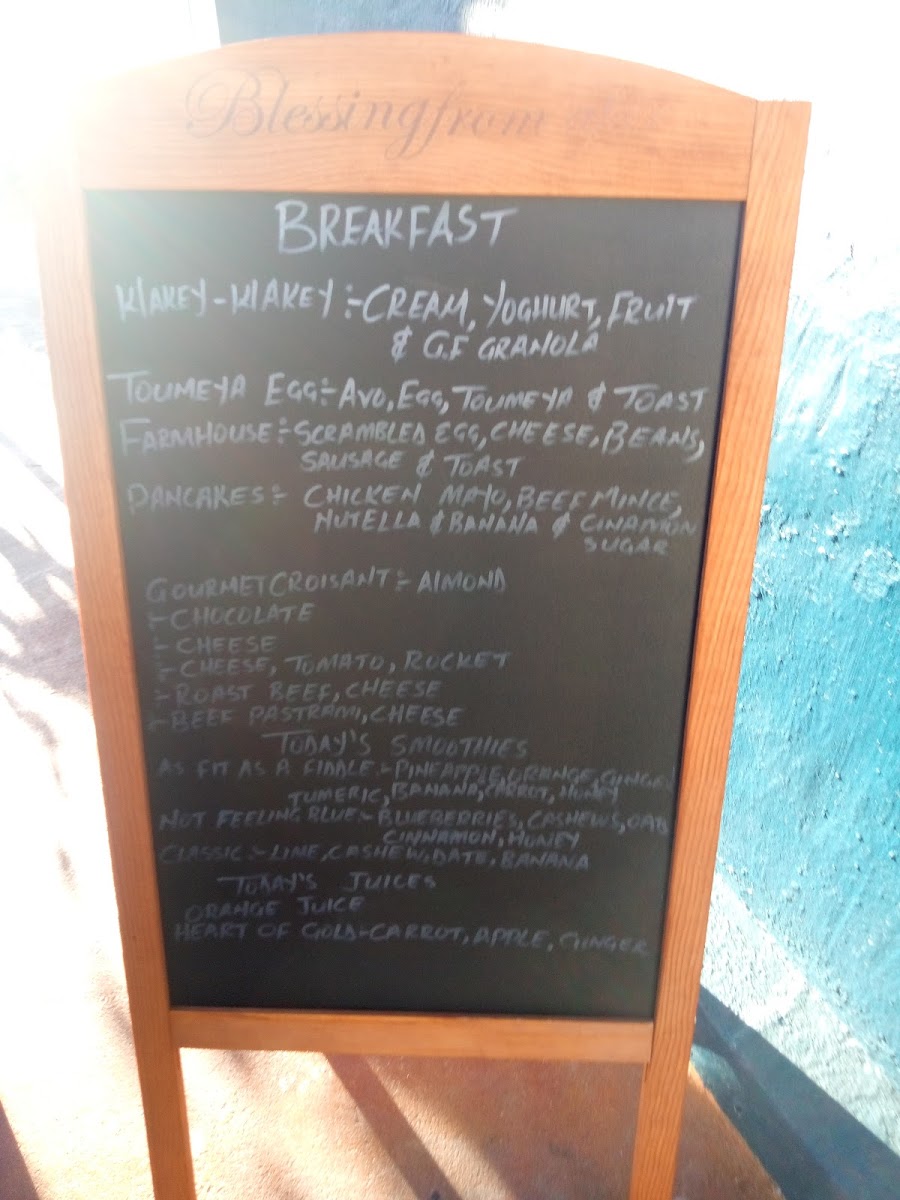 Blessing from
BREAKFAST
WAKEY-WAKEY:-CREAM, YOGHURT, FRUIT
& G.F GRANOLA
TOUMEYA EGG:-AVO, EGG, TOUMEYA & TOAST
FARMHOUSE:-SCRAMBLED EGG, CHEESE, BEANS,
SAUSAGE & TOAST
PANCAKES:- CHICKEN MAYO, BEEF MINCE,
NUTELLA & BANANA & CINAMON
SUGAR
GOURMET CROISANT:- ALMOND
:-CHOCOLATE
:-CHEESE
:-CHEESE, TOMATO, ROCKET
:-ROAST BEEF, CHEESE
:-BEEF PASTRAMI, CHEESE
TODAY'S SMOOTHIES
AS FIT AS A FIDDLE:-PINEAPPLE, ORANGE, GINGER
TUMERIC, BANANA, CARROT, HONEY
NOT FEELING BLUE:-BLUEBERRIES, CASHEWS, OAT
CINNAMON, HONEY
CLASSIC:-LIME, CASHEW, DATE, BANANA
TODAY'S JUICES
ORANGE JUICE
HEART OF GOLD-CARROT, APPLE, GINGER